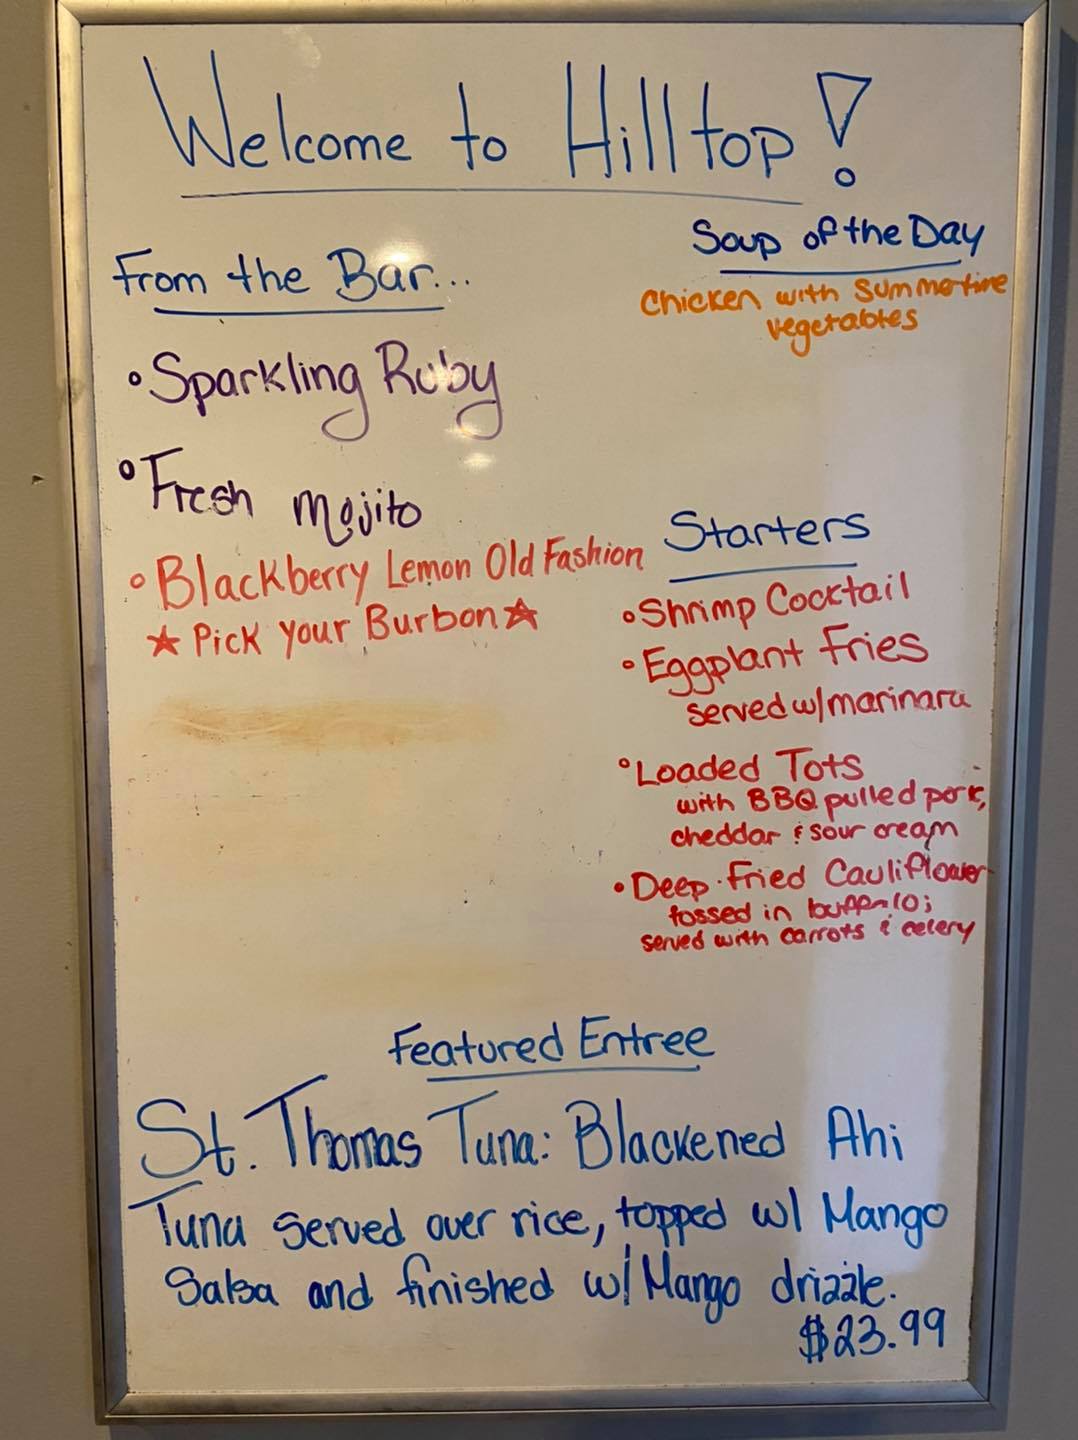 Welcome to Hilltop!
From the Bar...
• Sparkling Ruby
• Fresh Mojito
• Blackberry Lemon Old Fashion
★ Pick your Burbon ★
Soup of the Day
Chicken with Summertime
vegetables
Starters
• Shrimp Cocktail
• Eggplant Fries
served w/marinara
• Loaded Tots
with BBQ pulled pork,
cheddar & sour cream
• Deep-Fried Cauliflower
tossed in buffalo;
served with carrots & celery
Featured Entree
St. Thomas Tuna: Blackened Ahi
Tuna served over rice, topped w/ Mango
Salsa and finished w/ Mango drizzle.
$23.99